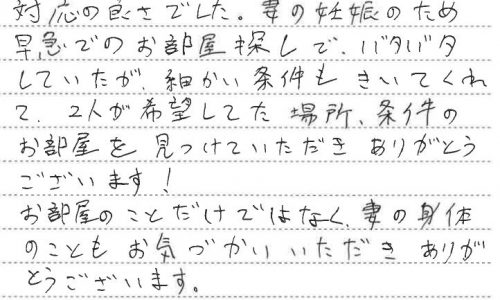 対応の良さでした。妻の妊娠のため
早急でのお部屋探しで、バタバタ
していたが、細かい条件もきいてくれ
て、2人が希望してた場所、条件の
お部屋を見つけていただきありがとう
ございます！
お部屋のことだけではなく、妻の身体
のこともお気づかいいただきありが
とうございます。